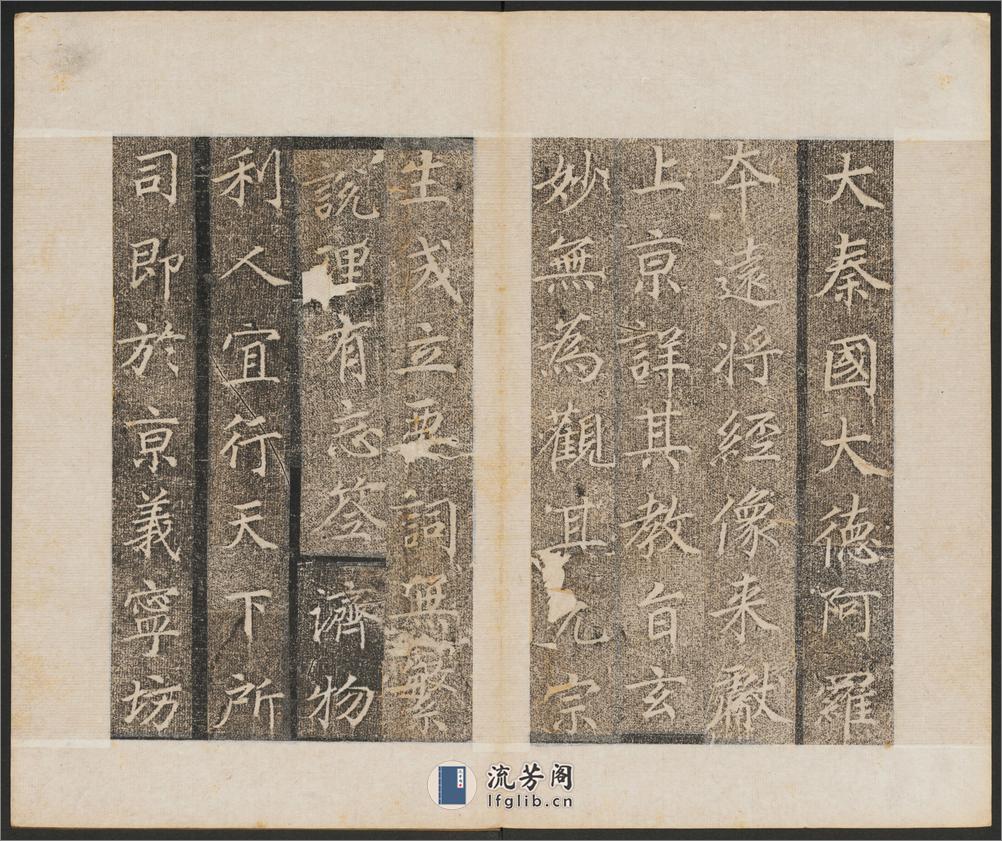 大秦國大德阿羅
本遠将經像来獻
上京詳其教旨玄
妙無為觀其元宗
生成立要詞無繁
說理有忘筌濟物
利人宜行天下所
司即於京義寧坊
流芳阁
lfglib.cn